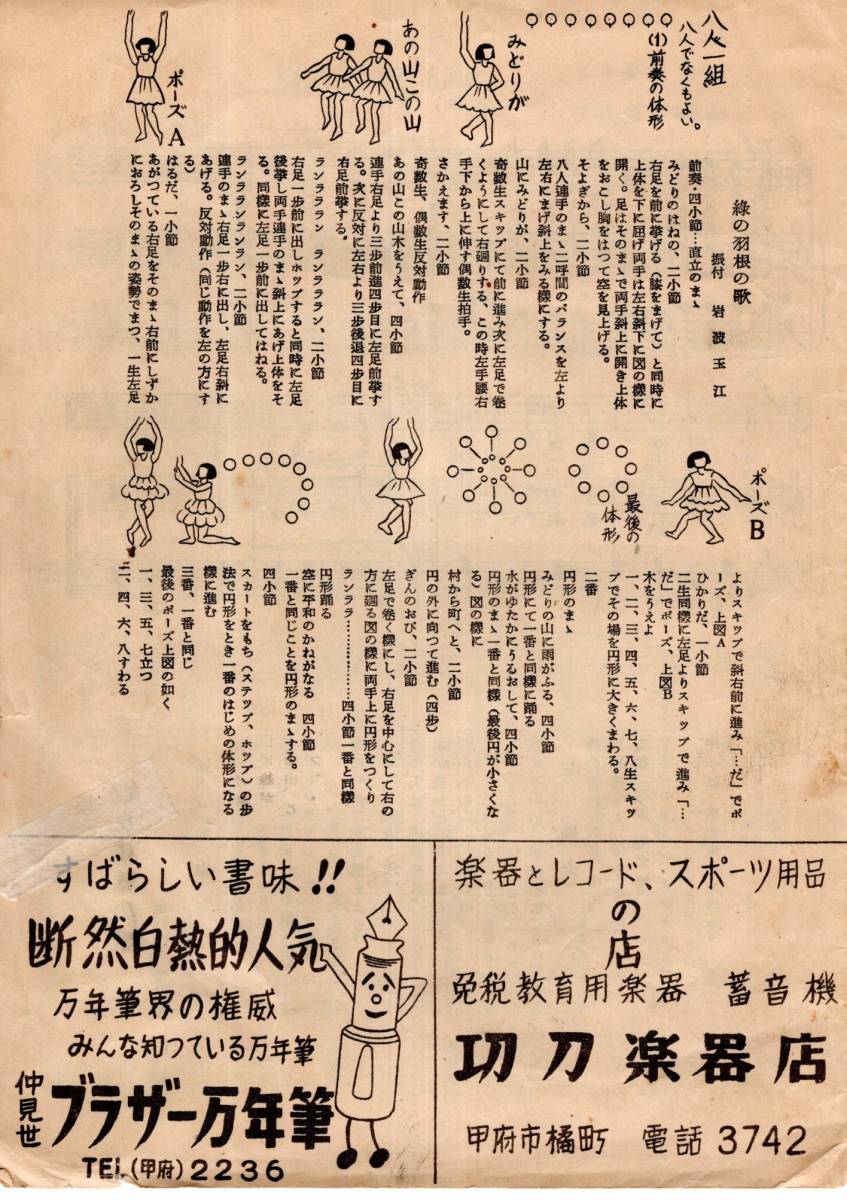 八人一組
八人でなくもよい。
(1)前奏の体形
みどりが
あの山この山
ポーズA
綠の羽根の歌
振付 岩波玉江
前奏・四小節…直立のまゝ
みどりのはねの、二小節
右足を前に挙げる(膝をまげて)と同時に
上体を下に屈げ両手は左右斜下に図の様に
開く。足はそのまゝで両手斜上に開き上体
をおこし胸をはつて空を見上げる。
そよぎから、二小節
八人連手のまゝ二呼間のバランスを左より
左右にまげ斜上をみる様にする。
山にみどりが、二小節
奇数生スキップにて前に進み次に左足で巻
くようにして右廻りする、この時左手腰右
手下から上に伸す偶数生拍手。
さかえます、二小節
奇数生、偶数生反対動作
あの山この山木をうえて、四小節
連手右足より三歩前進四歩目に左足前挙す
る。次に反対に左右より三歩後退四歩目に
右足前挙する。
ランラララン ランラララン、二小節
右足一歩前に出しホップすると同時に左足
後挙し両手連手のまゝ斜上にあげ上体をそ
る。同様に左足一歩前に出してはねる。
ランラランランラン、二小節
連手のまゝ右足一歩右に出し、左足右斜に
あげる。反対動作(同じ動作を左の方にす
る)
はるだ、一小節
あがつている右足をそのまゝ右前にしずか
におろしそのまゝの姿勢でまつ、一生左足
ポーズB
最後の
体形
よりスキップで斜右前に進み「…だ」でポ
ーズ、上図A
ひかりだ、一小節
二生同様に左足よりスキップで進み「…
だ」でポーズ、上図B
木をうえよ
一、二、三、四、五、六、七、八生スキッ
プでその場を円形に大きくまわる。
二番
円形のまゝ
みどりの山に雨がふる、四小節
円形にて一番と同様に踊る
水がゆたかにうるおして、四小節
円形のまゝ一番と同様(最後円が小さくな
る)図の様に
村から町へと、二小節
円の外に向つて進む(四歩)
ぎんのおび、二小節
左足で巻く様にし、右足を中心にして右の
方に廻る図の様に両手上に円形をつくり
ランララ…………四小節一番と同様
円形踊る
空に平和のかねがなる 四小節
一番と同じことを円形のまゝする。
四小節
スカートをもち(ステップ、ホップ)の歩
法で円形をとき一番のはじめの体形になる
様に進む
三番、一番と同じ
最後のポーズ上図の如く
一、三、五、七立つ
二、四、六、八すわる
楽器とレコード、スポーツ用品
の店
免税教育用楽器 蓄音機
功刀楽器店
甲府市橘町 電話3742
すばらしい書味!!
断然白熱的人気
万年筆界の権威
みんな知つている万年筆
仲見世
ブラザー万年筆
TEL(甲府)2236